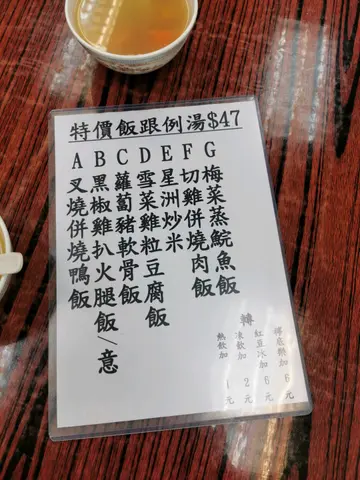 特價飯跟例湯$47
A B C D E F G
叉燒併燒鴨飯
黑椒雞扒火腿飯/意
蘿蔔豬軟骨飯
雪菜雞粒豆腐飯
星洲炒米
切雞併燒肉飯
梅菜蒸鯇魚飯
熱飲加 1元
凍飲加 2元
紅豆冰加 6元
6元